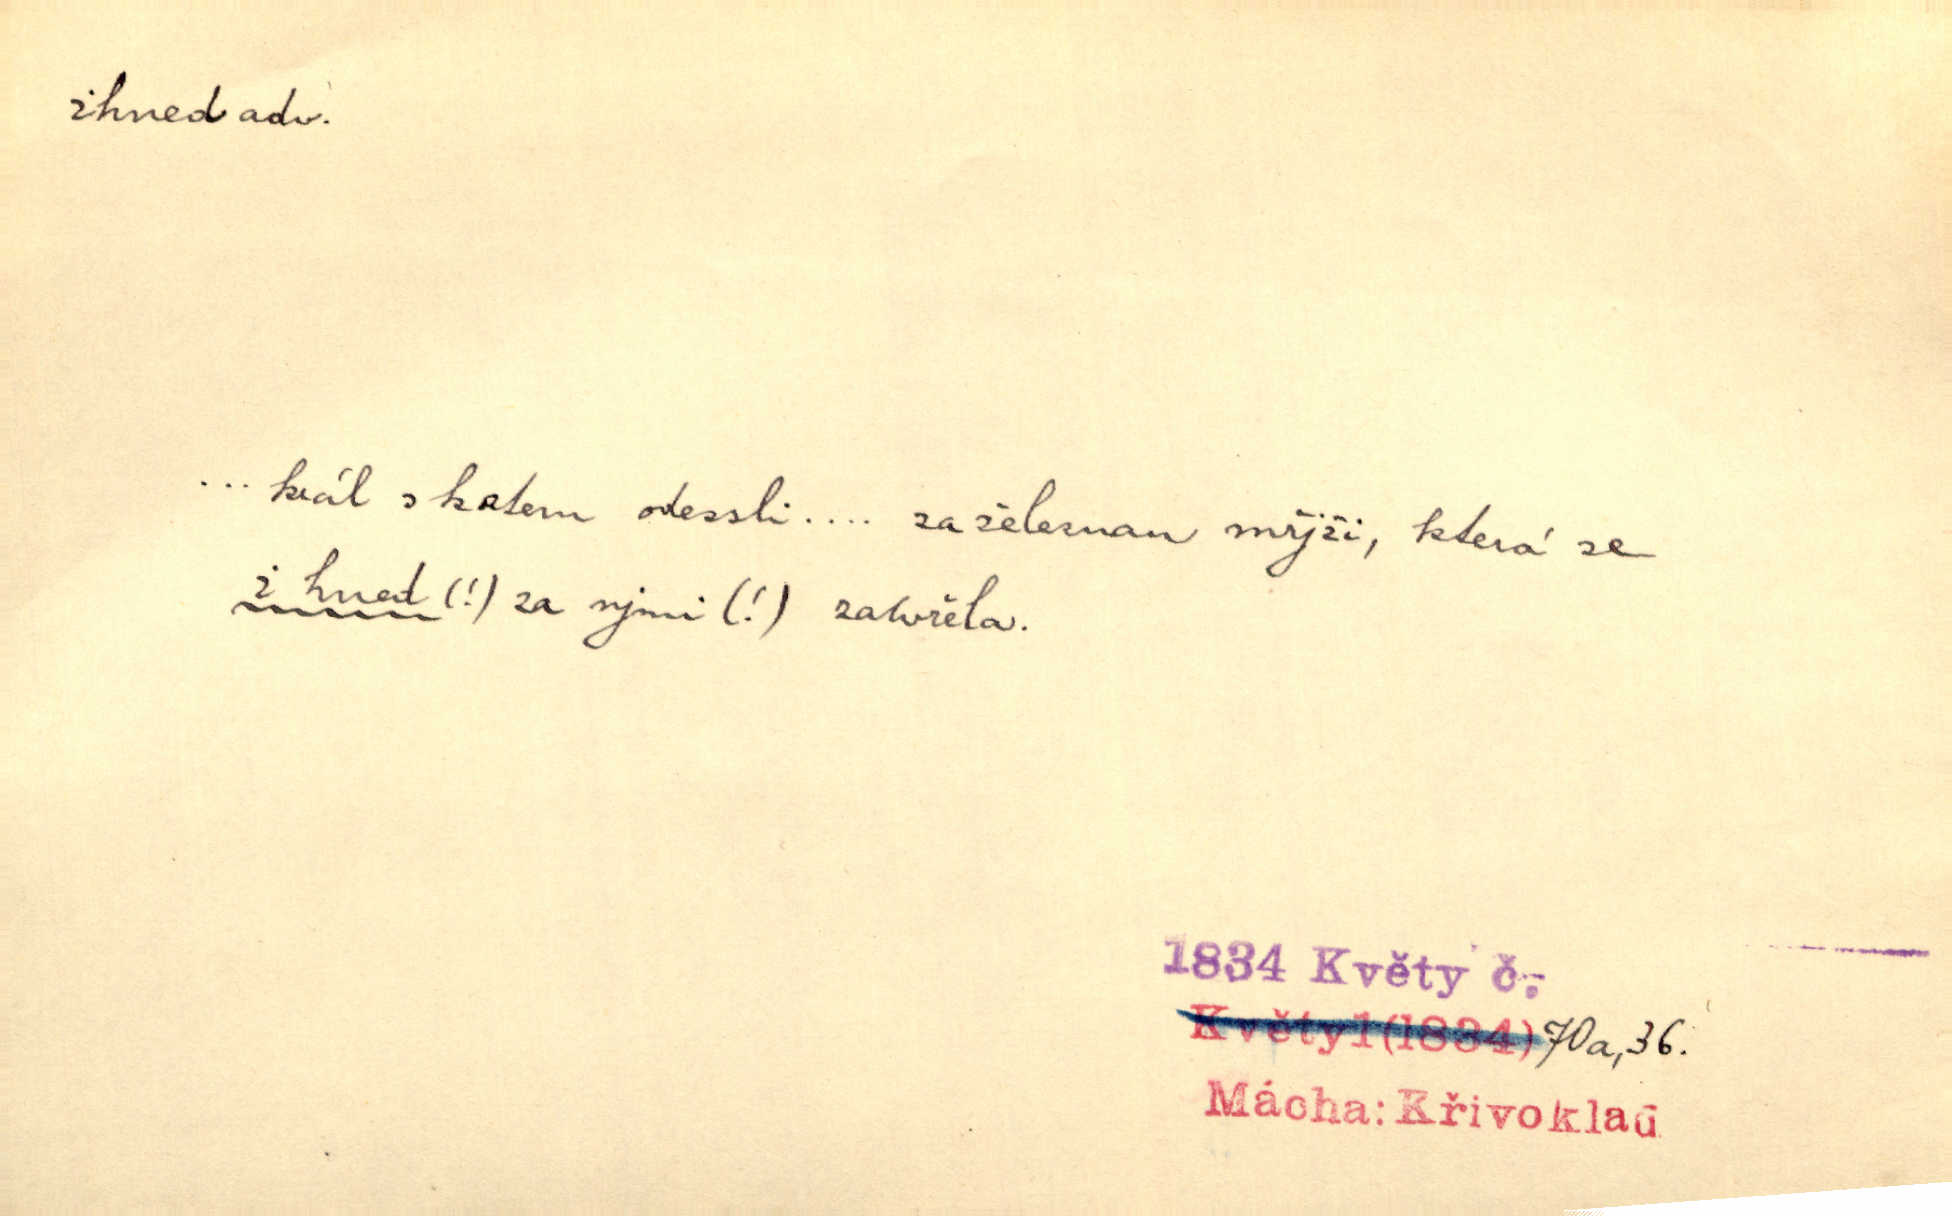 ihned adv.
... král s katem odessli.... za železnau mřjži, která se
i hned (!) za njmi (!) zawřela.
1834 Květy č.
Květy1(1834) 70a,36.
Mácha: Křivoklad